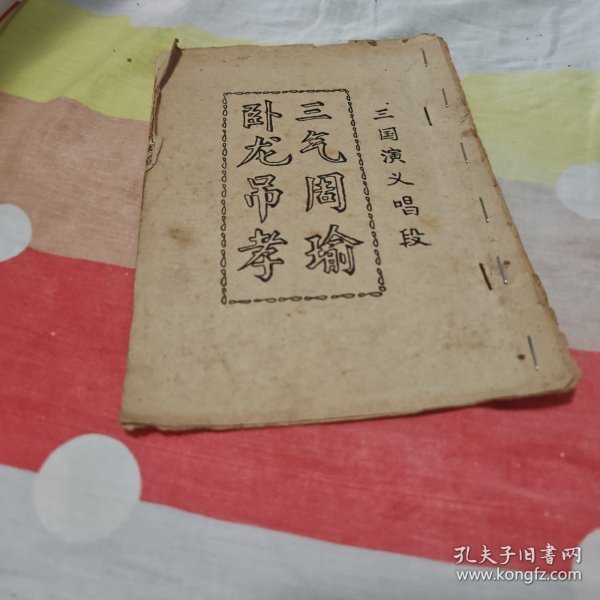 三国演义唱段
三气周瑜
卧龙吊孝
孔夫子旧书网
www.kongfz.com